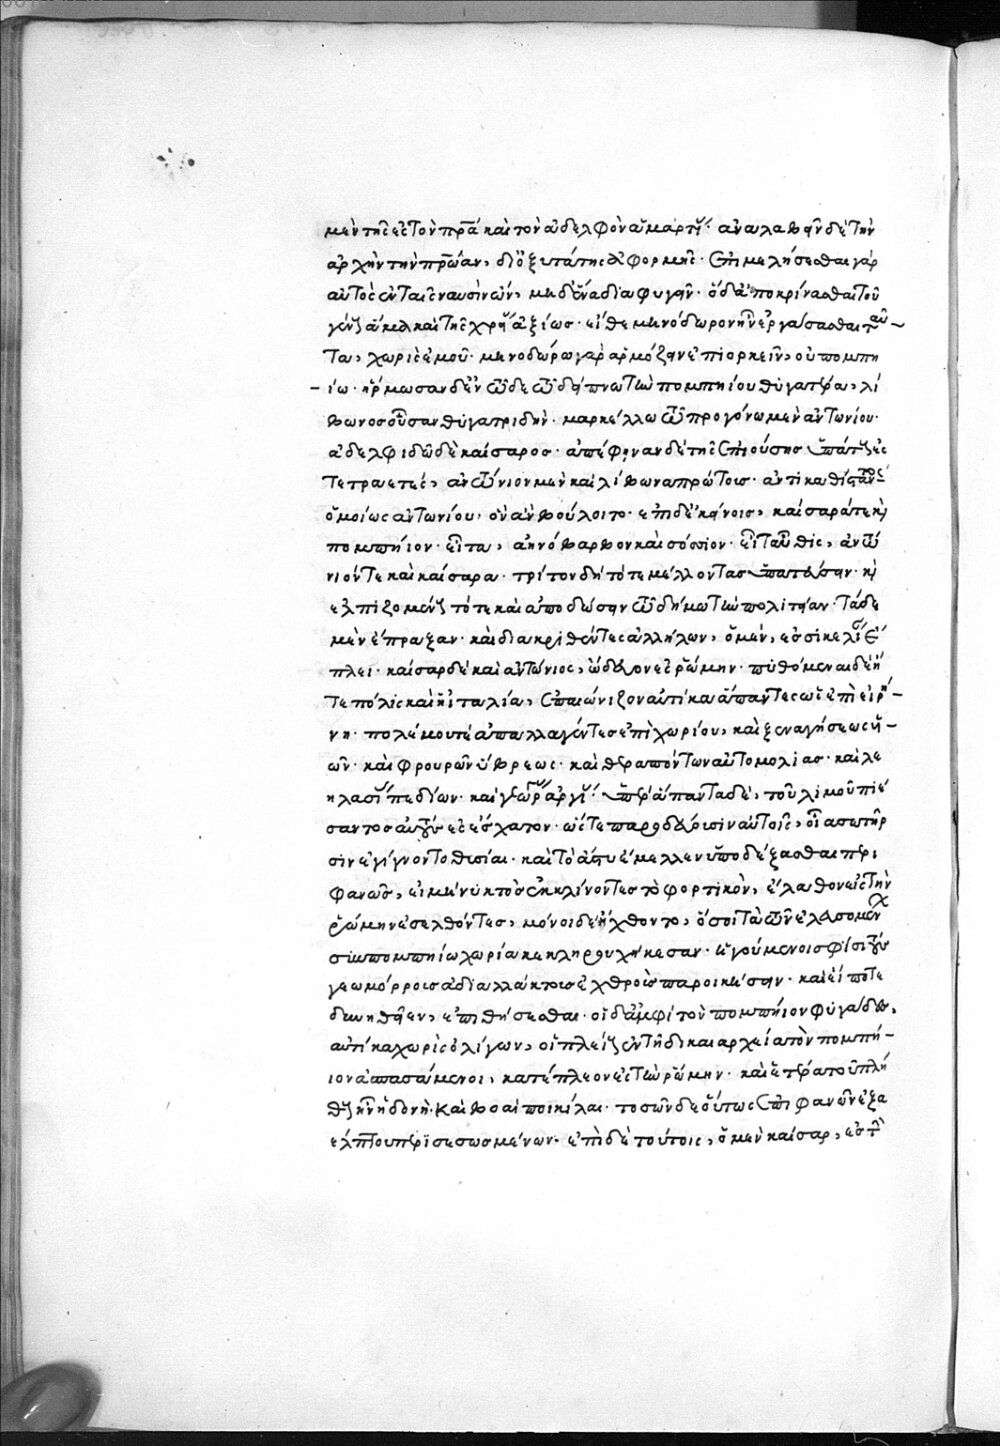 μὲν τῆς ἐς τὸν πρα καὶ τὸν ἀδελφὸν ἁμαρτι· ἀναλαβεῖν δὲ τὴν
ἀρχὴν τὴν πρώαν, δι' ὀξυτάτης ἀφορμῆς· ἐπιμελήσεσθαι γὰρ
αὐτὸς ἐνταῖς ναυσὶν ὢν, μηδένα διαφυγεῖν· ὁ δὲ ἀποκρίνασθαι τοῦ
γένους ἅμα καὶ τῆς χρείας ἀξίως· εἴθε μηνόδωρον ἦν ἐργάσασθαι ταῦ
τα, χωρὶς ἐμοῦ· μηνοδώρω γὰρ ἁρμόζειν ἐπιορκεῖν, οὐ πομπη
ίω· ἥρμωσαν δ' ἐν τῶδε τῶ δείπνω τὴν πομπηίου θυγατέρα, λί
βωνος οὖσαν θυγατριδῆν· μαρκέλλω τῶ προγόνω μὲν ἀντωνίου·
ἀδελφιδῶ δὲ καίσαρος· ἀπέφηναν δὲ τῆς ἐπιούσης ὑπάτους ἐς
τετραετὲς, ἀντώνιον μὲν καὶ λίβωνα πρώτοις· ἀντικαθιστάντος
ὁμοίως ἀντωνίου, ὃν ἂν βούλοιτο· ἐπὶ δὲ κείνοις, καίσαρά τε καὶ
πομπήιον· εἶτα, ἀηνόβαρβον καὶ σόσσιον· εἶτ' αὖθις, ἀντώ
νιόν τε καὶ καίσαρα· τρίτον δὴ τότε μέλλοντας ὑπατεύσειν· καὶ
ἐλπιζομένους τότε καὶ ἀποδώσειν τῶ δήμω τὴν πολιτείαν· τάδε
μὲν ἔπραξαν· καὶ διακριθέντες ἀλλήλων, ὁ μὲν, ἐς σικελίαν ἔ
πλει· καίσαρ δὲ καὶ ἀντώνιος, ὥδευον ἐς ῥώμην· πυθόμεναι δὲ ἥ
τε πόλις καὶ ἡ ἰταλία, ἐπαιώνιζον αὐτίκα ἅπαντες ὡς ἐπὶ εἰρή
νη· πολέμου τε ἀπαλλαγέντες ἐπὶ χωρίου, καὶ ξεναγήσεως υἱ
ῶν· καὶ φρουρῶν ὕβρεως· καὶ θεραπόντων αὐτομολίας· καὶ λε
ηλασίας πεδίων· καὶ γεωργίας ἀργίας· ὑπὲρ ἅπαντα δὲ, τοῦ λιμοῦ πιέ
σαντος αὐτοὺς ἐς ἔσχατον· ὥστε παροδεύουσιν αὐτοῖς, οἷα σωτῆρ
σιν ἐγίγνοντο θυσίαι· καὶ τὸ ἄστυ ἔμελλεν ὑποδέξασθαι περι
φανῶς, εἰ μὴ νυκτὸς ἐκκλίνοντες τὸ φορτικὸν, ἔλαθον εἰς τὴν
ῥώμην ἐσελθόντες, μόνοι δὲ ἤχθοντο, ὅσοι τὰ τῶν ἐλευσομένων
σὺν πομπηίω χωρία κεκληρουχήκεσαν· ἡγούμενοι σφίσι τοὺς
γεωμόρροις ἀδιαλλάκτοις ἐχθροῖς παροικήσειν· καὶ εἴ ποτε
δυνηθεῖεν, ἐπιθήσεσθαι· οἱ δ' ἀμφὶ τὸν πομπήιον φυγάδες,
αὐτίκα χωρὶς ὀλίγων, οἱ πλείους ἐν τῆ δικαιαρχεία τὸν πομπή
ιον ἀσπασάμενοι, κατέπλεον ἐς τὴν ῥώμην· καὶ ἑτέρα τοῦ πλή
θους ἦν ἡδονὴ· καὶ βοαὶ ποικίλαι· τοσῶνδε οὕτως ἐπιφανῶν ἐξ ἀ
ελπίτου περισεσωσμένων· ἐπὶ δὲ τούτοις, ὁ μὲν καίσαρ, ἐς τὴν